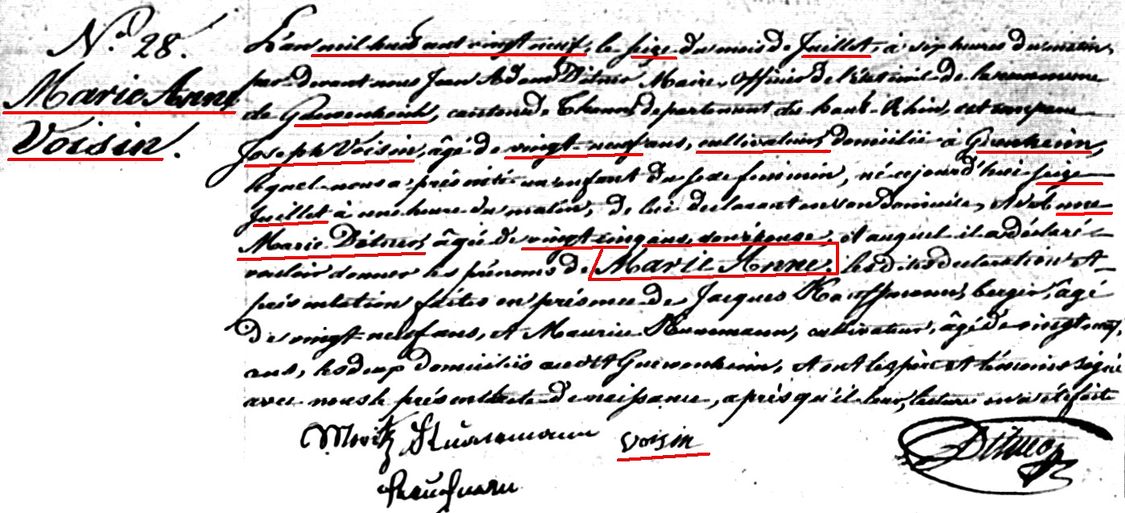 N.º 28.
Marie Anne
Voisin.
L'an mil huit cent vingt neuf, le seize du mois de Juillet, à sept heures du matin,
par devant nous Jean Adam Maire, officier de l'état civil de la commune
de Guewenheim, canton de Thann, département du haut-Rhin, est comparu
Joseph Voisin, âgé de vingt neuf ans, cultivateur, domicilié à Guewenheim,
lequel nous a présenté un enfant du sexe féminin, né ce jourd'hui seize
Juillet à une heure du matin, de lui déclarant en son domicile, et de Anne
Marie âgée de vingt cinq ans, son épouse, et auquel il a déclaré
vouloir donner les prénoms de Marie Anne. les dites déclaration et
présentation faites en présence de Jacques berger, âgé
de vingt neuf ans, et Maurice cultivateur, âgé de vingt neuf
ans, les deux domiciliés audit Guewenheim, et ont les père et témoins signé
avec nous le présent acte de naissance, après qu'il leur, lecture en a été faite
Moritz
Voisin